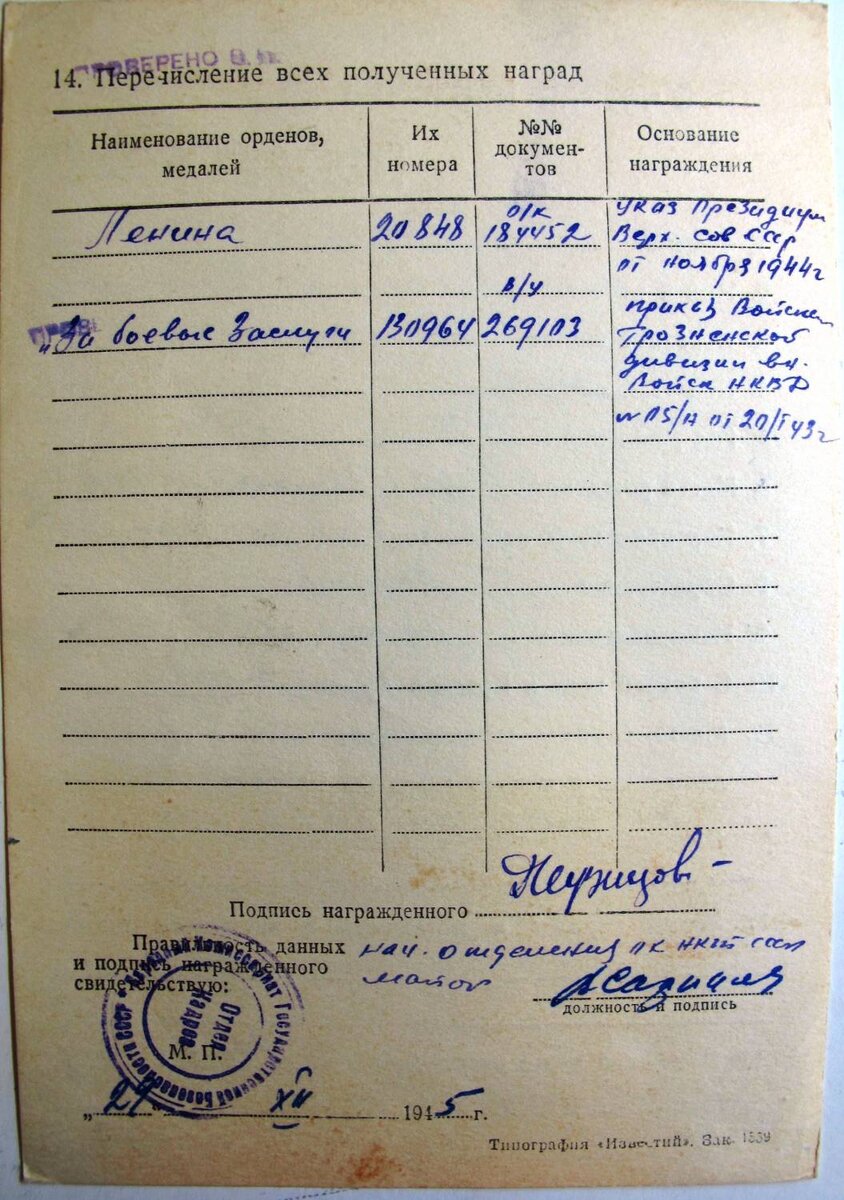 ПРОВЕРЕНО В
14. Перечисление всех полученных наград
Наименование орденов,
медалей
Их
номера
№№
докумен-
тов
Основание
награждения
Ленина
20848
о/к
184452
Указ Президиум
Верх. Сов ССР
от ноября 1944 г
ПРОВЕ
„За боевые заслуги
130964
в/у
269103
приказ Войскам
Грозненской
дивизии вн.
Войск НКВД
№ 05/н от 20/I 43 г
Подпись награжденного
Правильность данных
и подпись награжденного
свидетельствую:
нач. отделения ОК НКГБ ссср
майор
должность и подпись
Народный Комиссариат Государственной Безопасности СССР
Отдел
Кадров
М. П.
„ XII 1945 г.
Типография «Известий». Зак. 1339